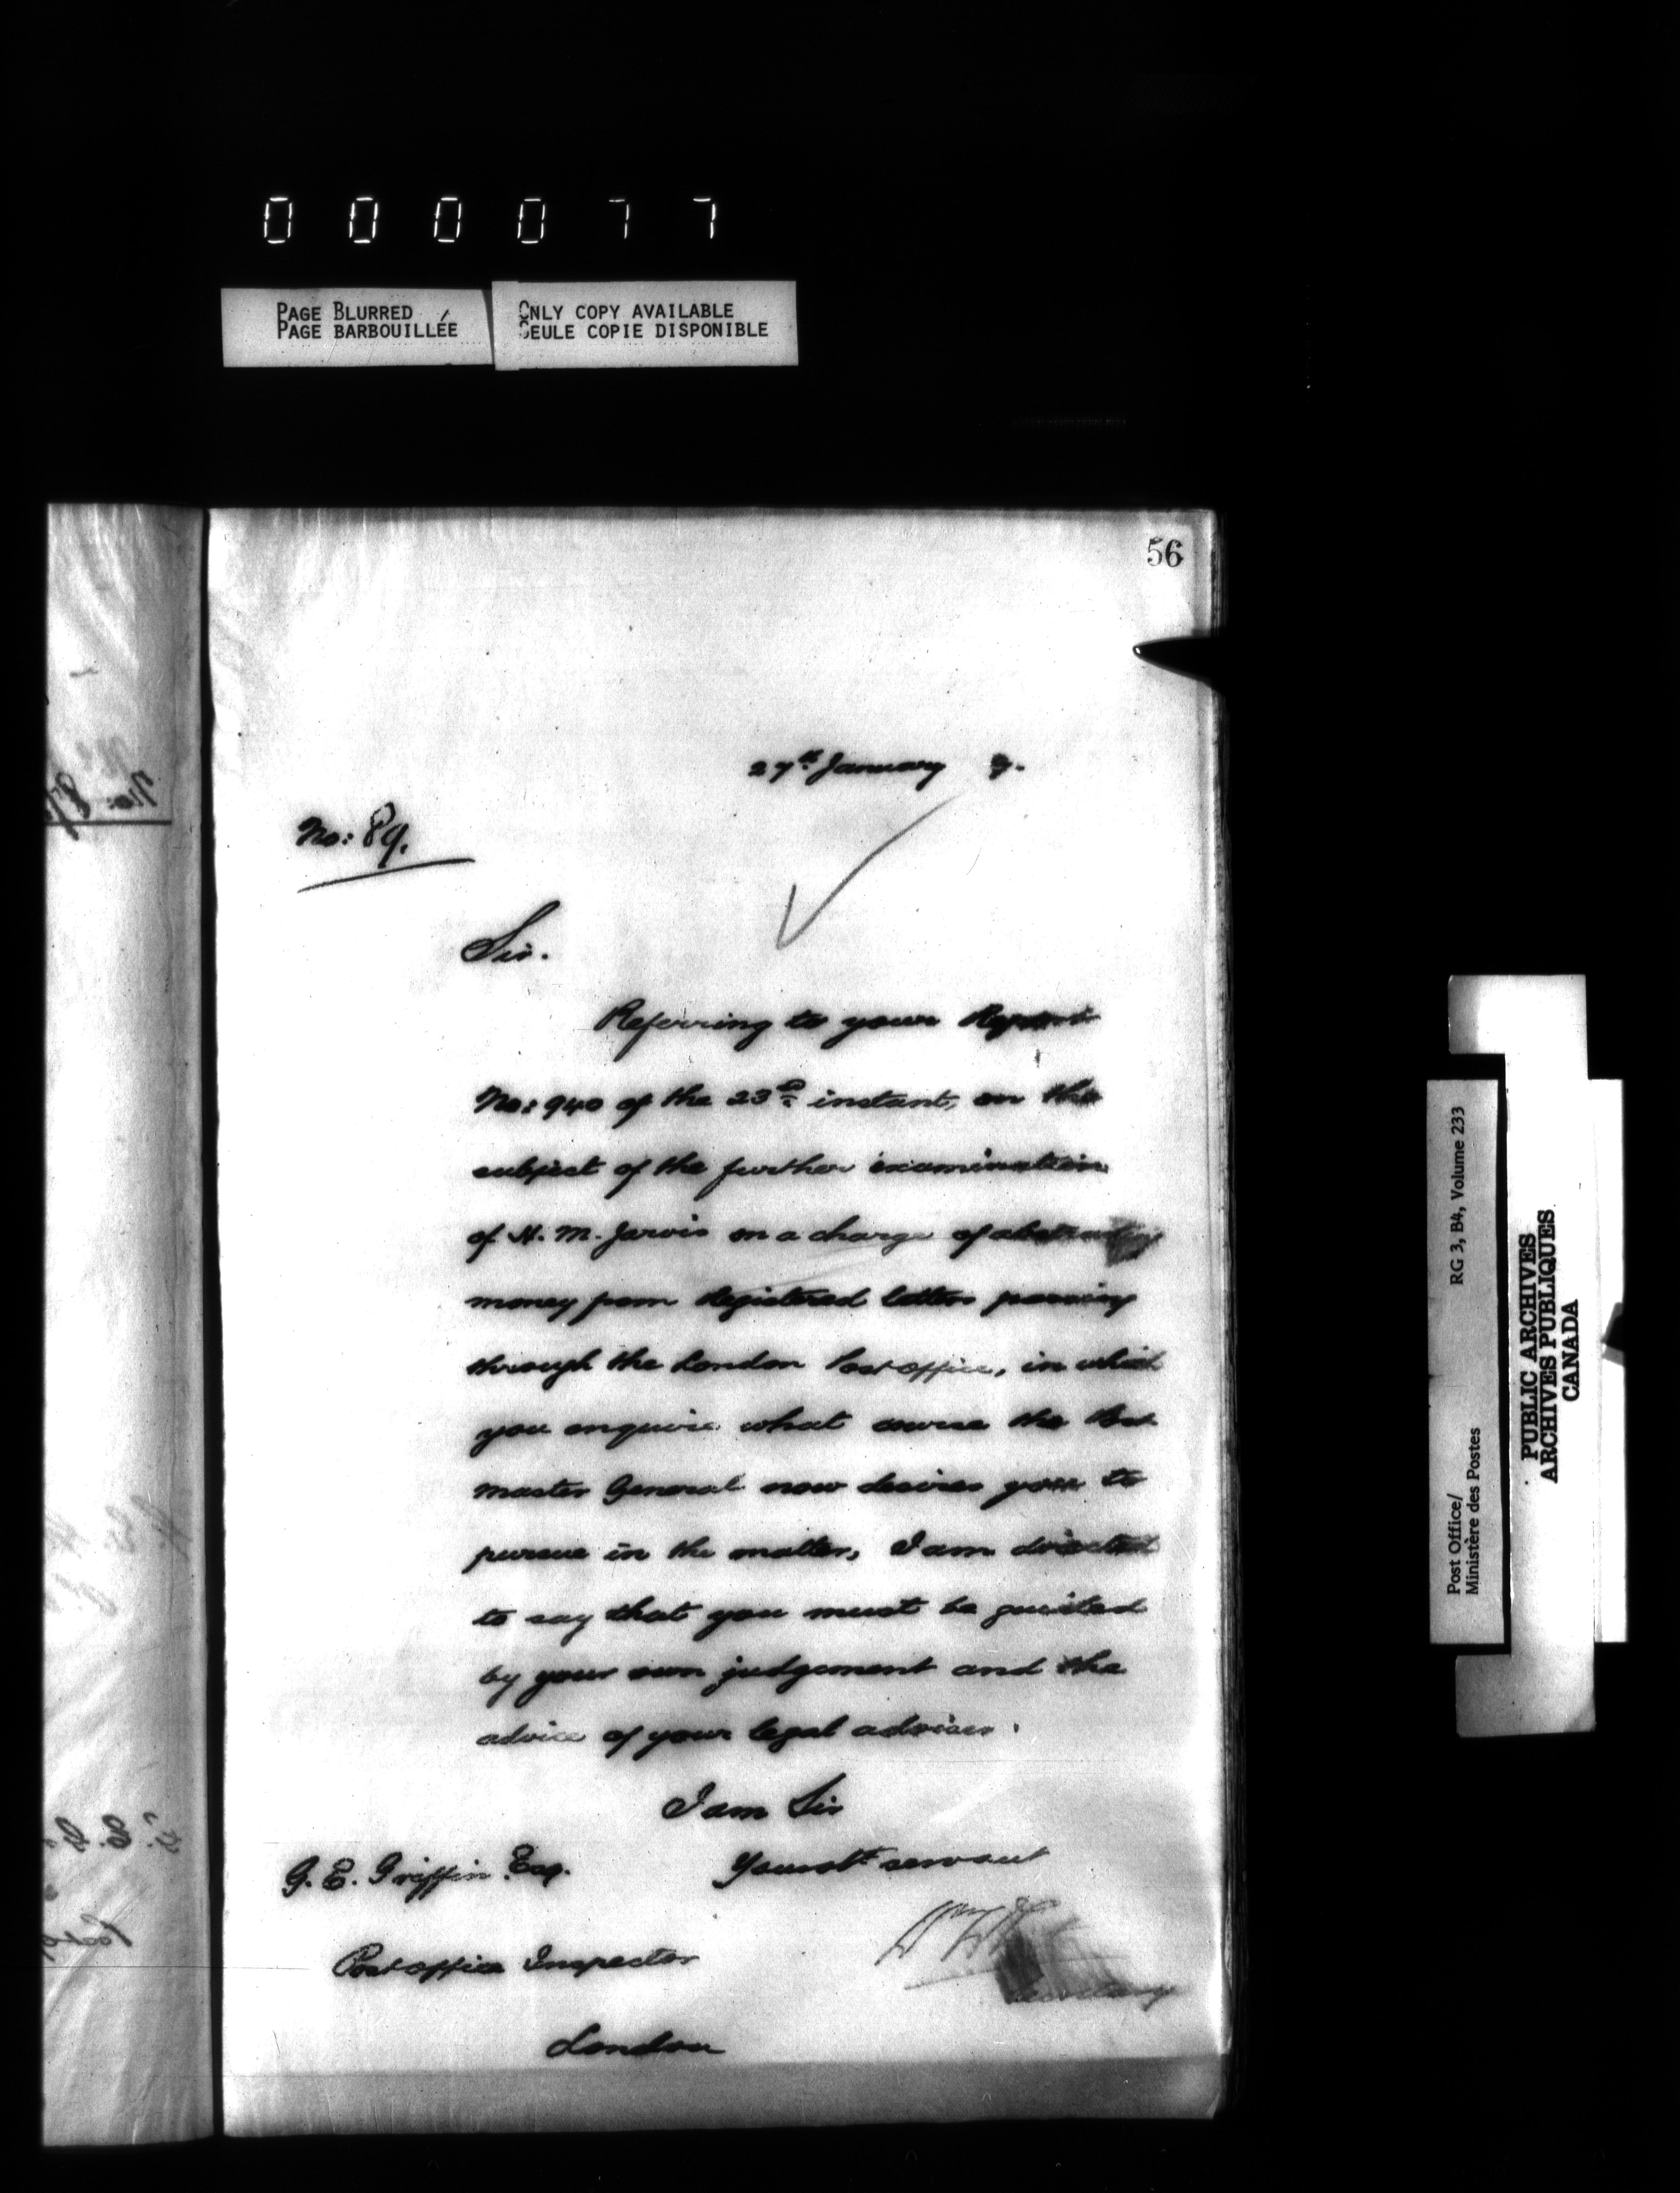 000077
PAGE BLURRED
PAGE BARBOUILLÉE
ONLY COPY AVAILABLE
SEULE COPIE DISPONIBLE
56
27th January 9.
No: 89.
Sir.
Referring to your Report
No: 940 of the 23rd instant, on the
subject of the further examination
of H. M. Jarvis on a charge of abstracting
money from Registered letters passing
through the London Post Office, in which
you enquire what course the Post
master General now desires you to
pursue in the matter, I am directed
to say that you must be guided
by your own judgement and the
advice of your legal adviser.
I am Sir
Your obt servant
G. E. Griffin Esq.
Secretary
Post Office Inspector
London
Post Office/
Ministère des Postes
RG 3, B4, Volume 233
PUBLIC ARCHIVES
ARCHIVES PUBLIQUES
CANADA